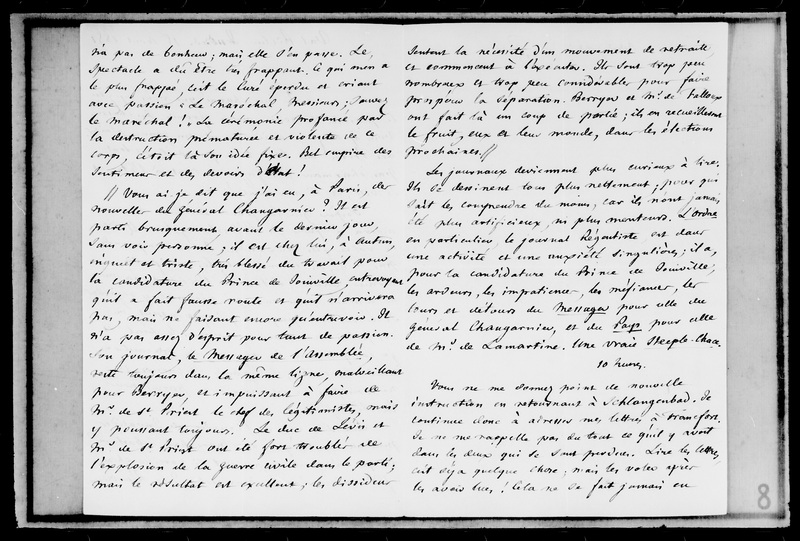 n'a pas de bonheur ; mais elle s'en passe. Le
Spectacle a dû être très frappant. Ce qui m'en a
le plus frappé, c'est le curé éperdu et criant
avec passion : « Le Maréchal, Messieurs ; sauvez
le maréchal ! » La cérémonie profanée par
la destruction prématurée et violente de ce
corps, c'étoit là son idée fixe. Bel empire des
Sentimens et des devoirs d'état !
// Vous ai-je dit que j'ai eu, à Paris, des
nouvelles du Général Changarnier ? Il est
parti brusquement, avant le dernier jour,
Sans voir personne ; il est chez lui, à Autun,
inquiet et triste, très blessé du travail pour
la candidature du Prince de Joinville, entrevoyant
qu'il a fait fausse route et qu'il n'arrivera
pas, mais ne faisant encore qu'entrevoir. Il
n'a pas assez d'esprit pour tant de passion.
Son journal, le Messager de l'Assemblée,
reste toujours dans la même ligne, malveillant
pour Berryer, et impuissant à faire de
Mr. de St Priest le chef des légitimistes, mais
y poussant toujours. Le duc de Lévis et
Mr. de St Priest ont été fort troublés de
l'explosion de la guerre civile dans le parti ;
mais le résultat est excellent ; les dissidens
sentent la nécessité d'un mouvement de retraite
et commencent à l'exécuter. Ils sont trop peu
nombreux et trop peu considérables pour faire
prospérer la séparation. Berryer et Mr. de Falloux
ont fait là un coup de partie ; ils en recueilleront
le fruit, eux et leur monde, dans les élections
prochaines. //
Les journaux deviennent plus curieux à lire.
Ils se dessinent tous plus nettement ; pour qui
sait les comprendre du moins, car ils n'ont jamais
été plus artificieux, ni plus menteurs. L'ordre
en particulier, le journal Régentiste est dans
une activité et une anxiété singulières ; il a,
pour la candidature du Prince de Joinville,
les ardeurs, les impatiences, les méfiances, les
tours et détours du Messager pour celle du
général Changarnier, et du Pays pour celle
de Mr. de Lamartine. Une vraie Steeple-Chace.
10 heures.
Vous ne me donnez point de nouvelle
instruction en retournant à Schlangenbad. Je
continue donc à adresser mes lettres à Francfort.
Je ne me rappelle pas du tout ce qu'il y avoit
dans les deux qui se sont perdues. Lire les lettres,
c'est déjà quelque chose ; mais les voler après
les avoir lues ! Cela ne se fait jamais en
8